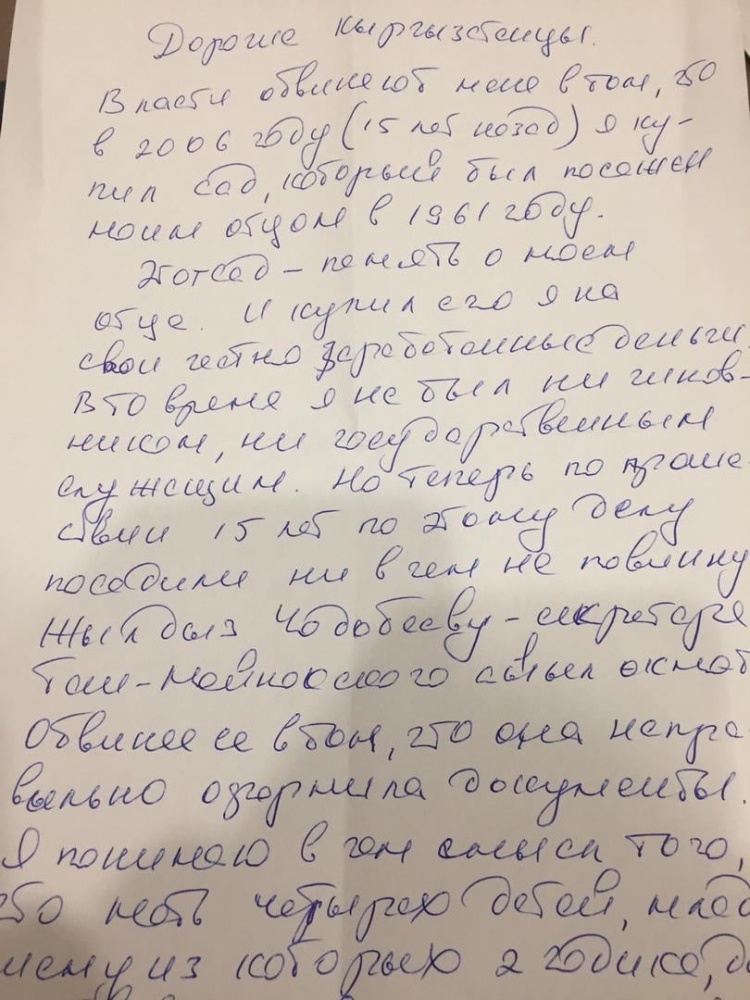 Дорогие кыргызстанцы.
Власти обвиняют меня в том, что
в 2006 году (15 лет назад) я ку-
пил сад, который был посажен
моим отцом в 1961 году.
Этот сад – память о моем
отце. И купил его я на
свои честно заработанные деньги.
В то время я не был ни чинов-
ником, ни государственным
служащим. Но теперь по проше
ствии 15 лет по этому делу
посадили ни в чем не повинну
Жылдыз Чодобаеву – секретаря
Таш-Мойнокского айыл окмот
Обвиняя ее в том, что она непра-
вильно оформила документы.
Я понимаю в чем смысл того,
что мать четырех детей, млад
шему из которых 2 годика,